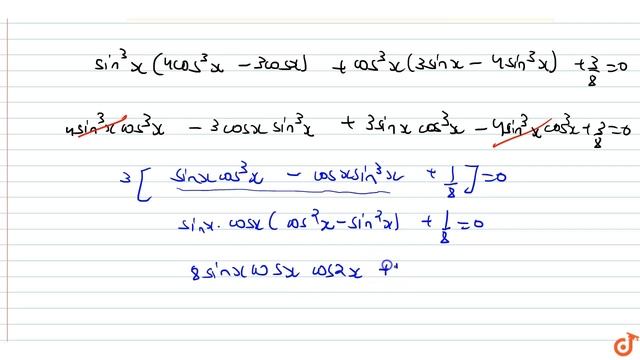 sin³x(4cos³x - 3cosx) + cos³x(3sinx - 4sin³x) + 3/8 = 0
4sin³x cos³x - 3cosx sin³x + 3sinx cos³x - 4sin³x cos³x + 3/8 = 0
3[ sinx cos³x - cosx sin³x + 1/8 ] = 0
sinx · cosx (cos²x - sin²x) + 1/8 = 0
8sinx cosx cos2x +